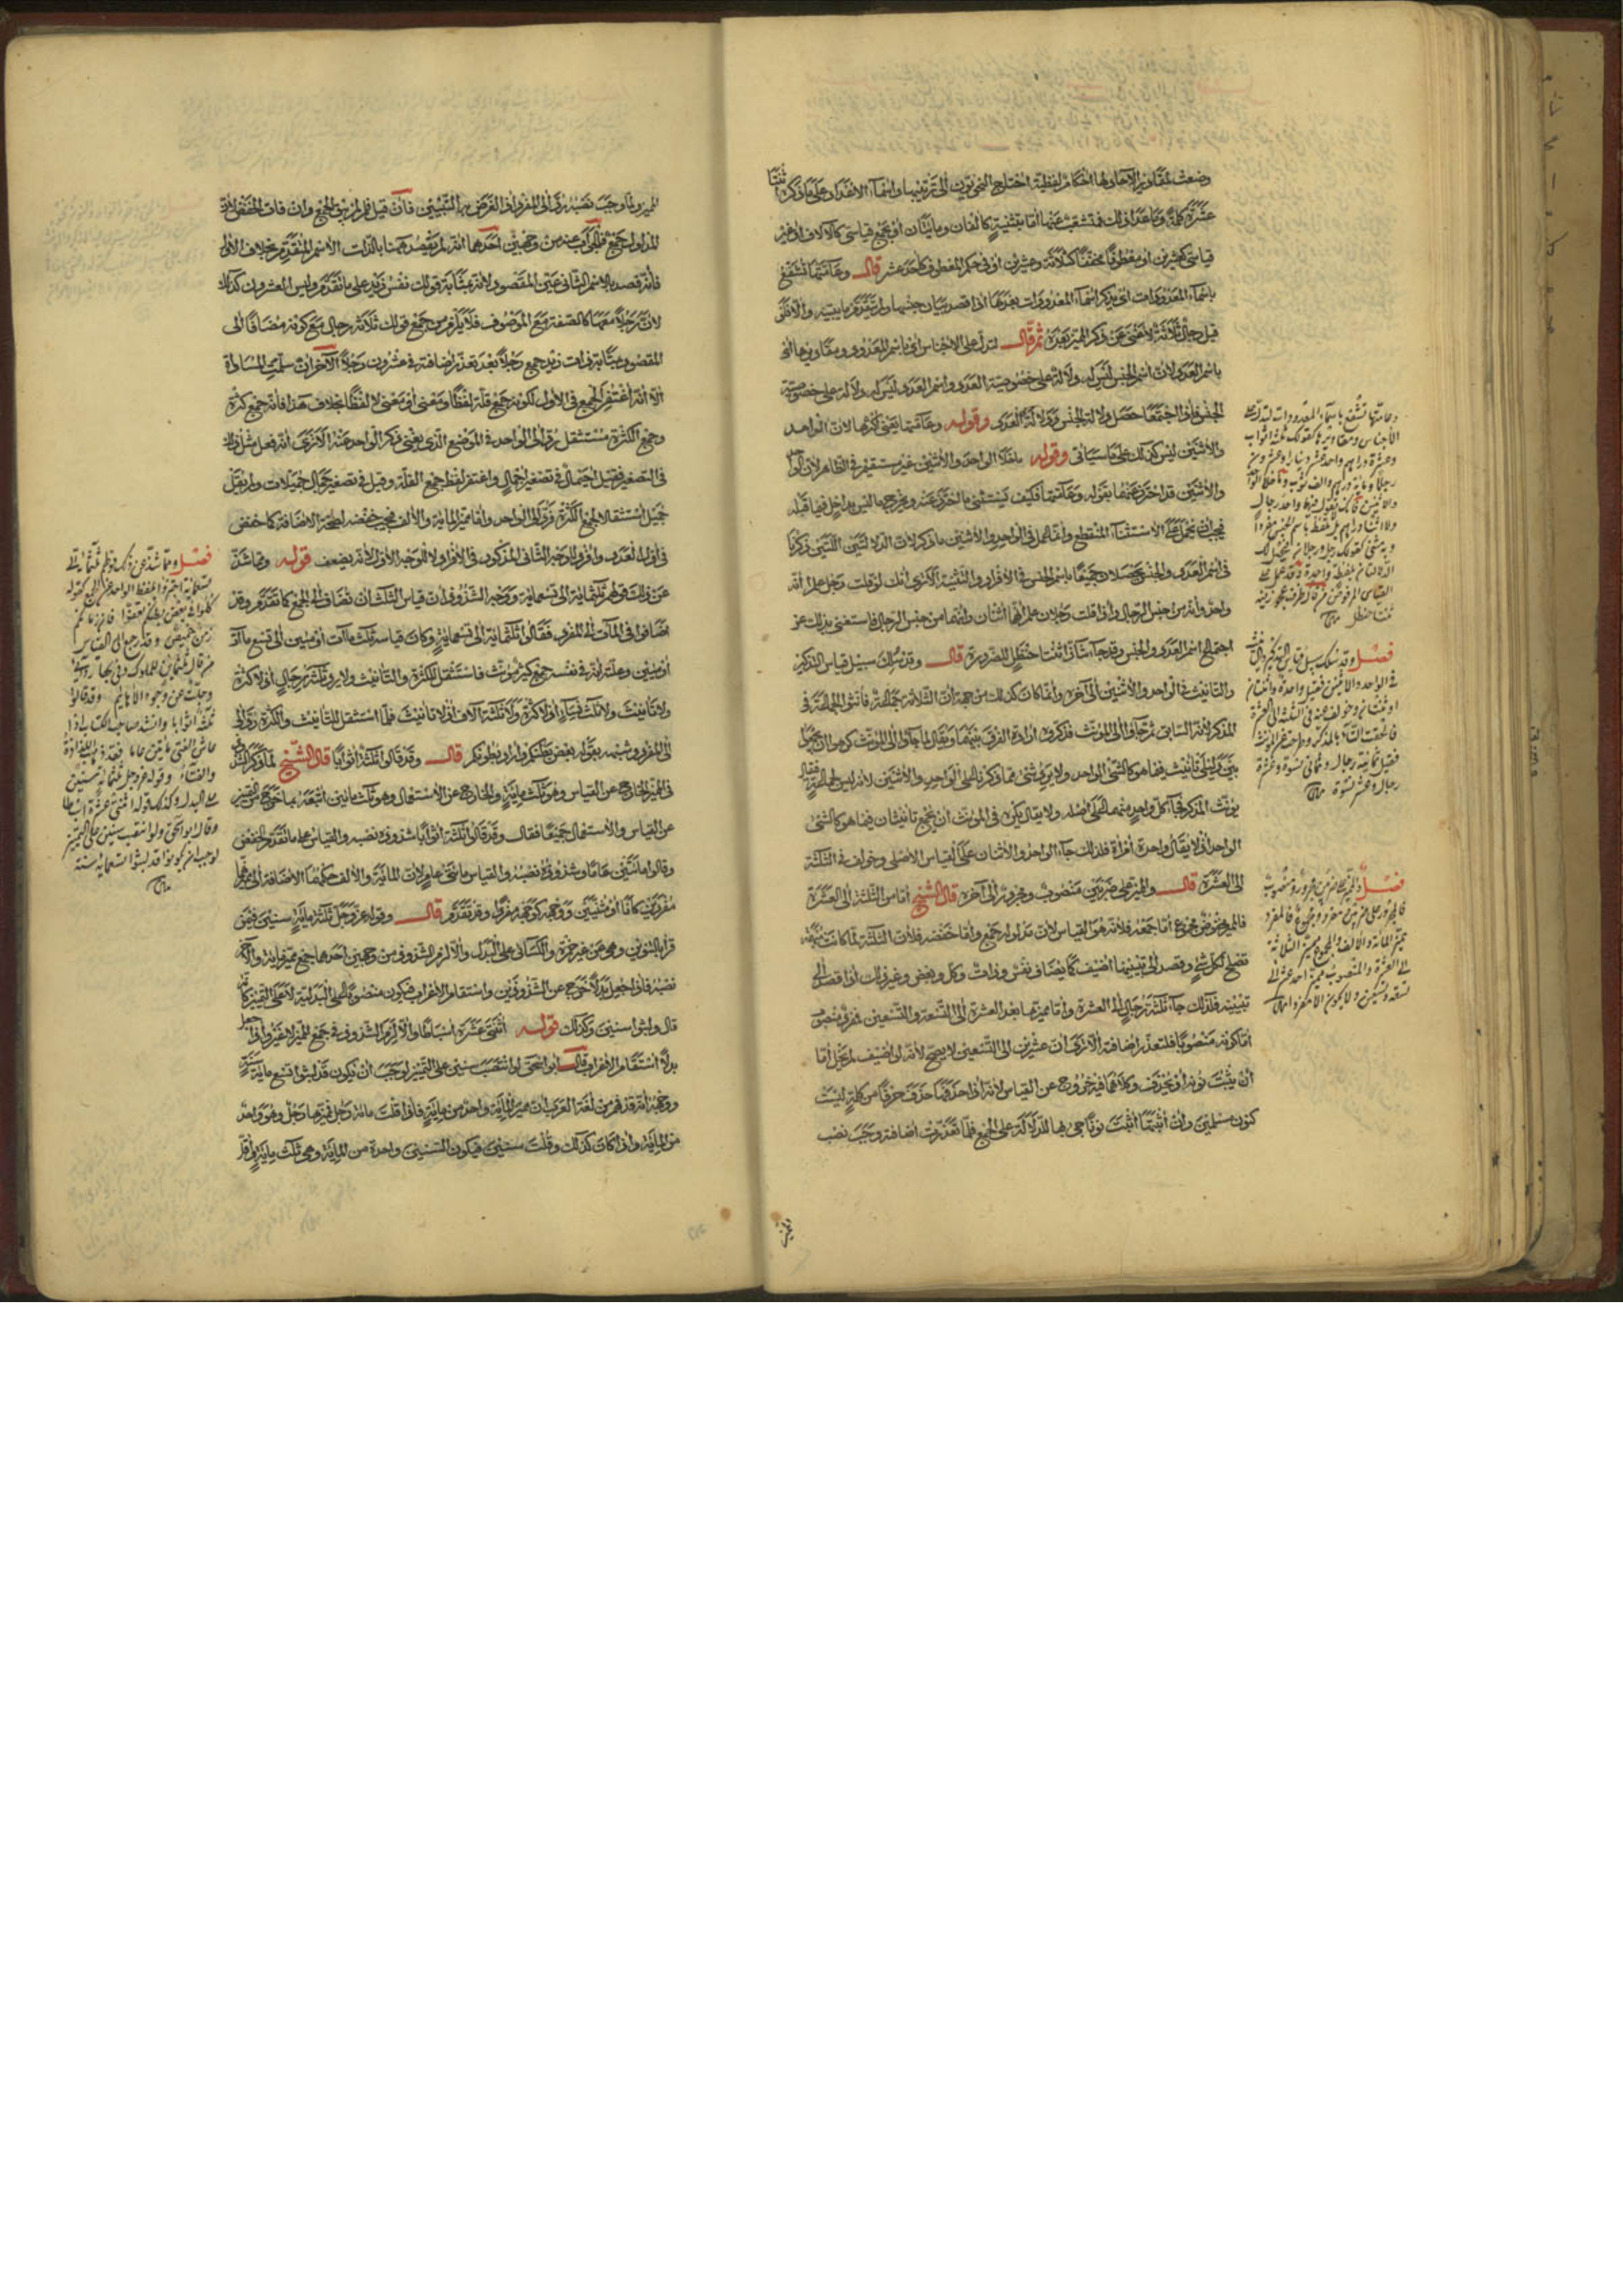 وضعت لمقادير الآحاد ولها احكام لفظية احتاج النحويون الى ترتيبها واسماء الاعداد على ما ذكره اثنتا
عشرة كلمة وما عدا ذلك فمتشعب عنها اما بتثنية كالفان ومايتان او بجمع قياسي كالآلاف او غير
قياسي كعشرين او معطوفا محققا كثلاثة وعشرين او في حكم المعطوف كاحد عشر قال وعامتها تشفع
باسماء المعدودات اي يذكر اسماء المعدودات بعدها اذا قصد بيان جنسها ولم يتقدم ما يبينه والا فلو
قيل رجال ثلاثة لاغنى عن ذكر المميز بعده ثم قال لتدل على الاجناس اي باسم المعدود ومقاديرها اي
باسم العدد لان اسم الجنس ليس له دلالة على خصوصية العدد واسم العدد ليس له دلالة على خصوصية
الجنس فاذا اجتمعا حصل دلالة الجنس ودلالة العدد وقوله وعامتها يعني اكثرها لان الواحد
والاثنين ليس كذلك على ما سيأتي وقوله ما خلا الواحد والاثنين غير مستقيم في الظاهر لان الواحد
والاثنين قد احترز عنهما بقوله وعامتها فكيف يستثني ما احترز عنه ويخرج ما ليس بداخل فيما قبله
فيجب ان يحمل على الاستثناء المنقطع وانما لم يحمل في الواحد والاثنين ما ذكر لان الدلالتين اللتين ذكرنا
في اسم العدد والجنس تحصلان جميعا باسم الجنس في الافراد والتثنية الا ترى انك لو قلت رجل علم انه
واحد وانه من جنس الرجال واذا قلت رجلان علم انهما اثنان وانهما من جنس الرجال فاستغنى بذلك عن
اجتماع اسم العدد والجنس وقد جاء شاذا ثنتا حنظل للضرورة قال وقد سلك سبيل قياس التذكير
والتأنيث في الواحد والاثنين الى آخره وانما كان كذلك من جهة ان الثلاثة جماعة فانثوا الجماعة في
المذكر لانه السابق ثم جاؤا الى المؤنث فذكروه ارادة الفرق بينهما ويقال لما جاؤا الى المؤنث كرهوا ان يجمعوا
الواحد اذ لا يقال واحدة امرأة فلذلك جاء الواحد والاثنان على القياس الاصلي وخولف في الثلثة
الى العشرة قال والمميز على ضربين منصوب ومجرور الى آخره قال الشيخ اما من الثلثة الى العشرة
فالمميز مخفوض مجموع اما جمعه فلأنه هو القياس لان مدلوله جمع واما خفضه فلأن الثلثة لما كانت مبهمة
تصلح لكل شيء وقصد الى تبيينها اضيف كما يضاف نفس وذات وكل وبعض وغير ذلك اذا قصد الى
تبيينه فلذلك جاء ثلثة رجال الى العشرة واما مميز ما بعد العشرة الى التسعة والتسعين فمفرد منصوب
اما كونه منصوبا فلتعذر اضافته الا ترى ان عشرين الى التسعين لا يصح لانه لو اضيف لم يخل اما
ان يثبت نونه او يحذف وكلاهما فيه خروج عن القياس لانه اذا حذفها حذف حرفا من كلمة ليست
كنون مسلمين وان اثبتها اثبت نونا جيء بها للدلالة على الجمع فلما تعذرت اضافته وجب نصب
وعامتها تشفع باسماء المعدودات لتدل على
الاجناس ومقاديرها كقولك ثلثة اثواب
وعشرة دراهم واحد عشر دينارا وعشرون
رجلا ومائة درهم والف ثوب ما خلا الواحد
والاثنين فانك لا تقول فيهما واحد رجال
ولا اثنا دراهم بل تلفظ باسم الجنس مفردا
وبه مثنى كقولك رجل ورجلان فتحصل لك
الدلالتان بلفظة واحدة وقد عمل على
القياس المرفوض من قال ظرف عجوز فيه
ثنتا حنظل
فصل وقد سلك سبيل قياس التذكير والتأنيث
في الواحد والاثنين فقيل واحدة واثنتان
او ثنتان وخولف عنه في الثلثة الى العشرة
فالحقت التاء بالمذكر وطرحت عن المؤنث
فقيل ثمانية رجال وثماني نسوة وعشرة
رجال وعشر نسوة
فصل والمميز على ضربين مجرور ومنصوب
فالمجرور على ضربين مفرد ومجموع فالمفرد
مميز المائة والالف والمجموع مميز الثلاثة
الى العشرة والمنصوب مميز احد عشر الى
تسعة وتسعين ولا يكون الا مفردا
المميز ولما وجب نصبه رد الى المفرد اذ الغرض به التبيين فان قيل فلم لم يبق الجمع وان فات الخفض لانه
المدلول جمع فالجواب عنه من وجهين احدهما انه لم يقصد ههنا بالذات الاسم المتقدم بخلاف الاول
فانه قصد بالاسم الثاني عين المقصود لانه بمثابة قولك نفس زيد على ما تقدم وليس العشرون كذلك
لان رجلا معها كالصفة مع الموصوف فلا يلزم من جمع قولك ثلاثة رجال مع كونه مضافا الى
المقصود بمثابة ذات زيد جمع رجلا بعد تعذر اضافته في عشرون رجلا الآخر ان سلمت المساواة
الا انه اغتفر الجمع في الاول لكونه جمع قلة لفظا ومعنى او معنى لا لفظا بخلاف هذا فانه جمع كثرة
وجمع الكثرة مستثقل رد الى الواحد في الموضع الذي يغني ذكر الواحد عنه الا ترى انه فعل مثل ذلك
في التصغير فقيل اجيمال في تصغير اجمال واغتفر لفظ جمع القلة وقيل في تصغير جمال جميلات ولم يقل
جميل استثقالا لجمع الكثرة فرد الى الواحد واما مميز المائة والالف فمجيء خفضه لصحة الاضافة كما خفض
في اول العدد وافرد للوجه الثاني المذكور في الافراد لا للوجه الاول لانه يضعف قوله ومما شذ
عن ذلك قولهم ثلثمائة الى تسعمائة ووجه الشذوذ ان قياس الثلث ان تضاف الى الجمع كما تقدم وقد
اضافوا في المآت الى المفرد فقالوا ثلثمائة الى تسعمائة وكان قياسه ثلث مآت او مئين الى تسع مآت
او مئين وعلته انه في نفسه جمع كثير مؤنث فاستثقل للكثرة والتأنيث ولا يرد ثلثة رجال اذ لا كثرة
ولا تأنيث ولا ثلث نساء اذ لا كثرة ولا ثلثة آلاف اذ لا تأنيث فلما استثقل للتأنيث والكثرة رد الى
المفرد وشبهه بقوله بعض بطنكم وارادة بطونكم قال وقد قالوا ثلثة اثوابا قال الشيخ لما ذكر
في المميز الخارج عن القياس وهو ثلث مائة والخارج عن الاستعمال وهو ثلث مائين اتبعه بما خرج من المميز
عن القياس والاستعمال جميعا فقال وقد قالوا ثلثة اثوابا شذوذه نصبه والقياس على ما تقدم الخفض
وقالوا مائتين عاما وشذوذه نصبه والقياس مائتي عام لان المائة والالف حكمهما الاضافة الى مميزهما
مفردين كانا او مثنيين ووجهه كوجه مفردا وقد تقدم قال وقوله عز وجل ثلثمائة سنين فيمن
قرأ بالتنوين وهي عن غير حمزة والكسائي على البدل والا لزم الشذوذ من وجهين احدهما جمع مميز مائة والآخر
نصبه فاذا جعل بدلا خرج عن الشذوذين واستقام الاعراب فيكون منصوبا على البدلية لا على التمييز كأنه
قال ولبثوا سنين وكذلك قوله اثنتي عشرة اسباطا والا لزم الشذوذ في جمع المميز لا غير واذا جعل
بدلا استقام الاعراب قال ابو اسحق لو انتصب سنين على التمييز لوجب ان يكون قد لبثوا تسع مائة سنة
ووجهه انه قد فهم من لغة العرب ان مميز المائة واحد من مائة فاذا قلت مائة رجل فمميزها رجل وهو واحد
من المائة واذا كان كذلك وقلت سنين فيكون السنين واحدة من المائة وهي ثلث مائة واقل
فصل ومما شذ عن ذلك قولهم ثلثمائة الى
تسعمائة اجتزؤا بلفظ الواحد عن الجمع كقوله
كلوا في بعض بطنكم تعفوا فان زمانكم
زمن خميص وقد رجع الى القياس
من قال ثلث مئين للملوك وفى بها ردائي
وجلت عن وجوه الاهاتم وقد قالوا
ثلثة اثوابا وانشد صاحب الكتاب اذا
عاش الفتى مائتين عاما فقد ذهب اللذاذة
والفتاء وقوله عز وجل ثلثمائة سنين
على البدل وكذلك قوله اثنتي عشرة اسباطا
وقال ابو اسحق ولو انتصب سنين على التمييز
لوجب ان يكونوا قد لبثوا تسعمائة سنة